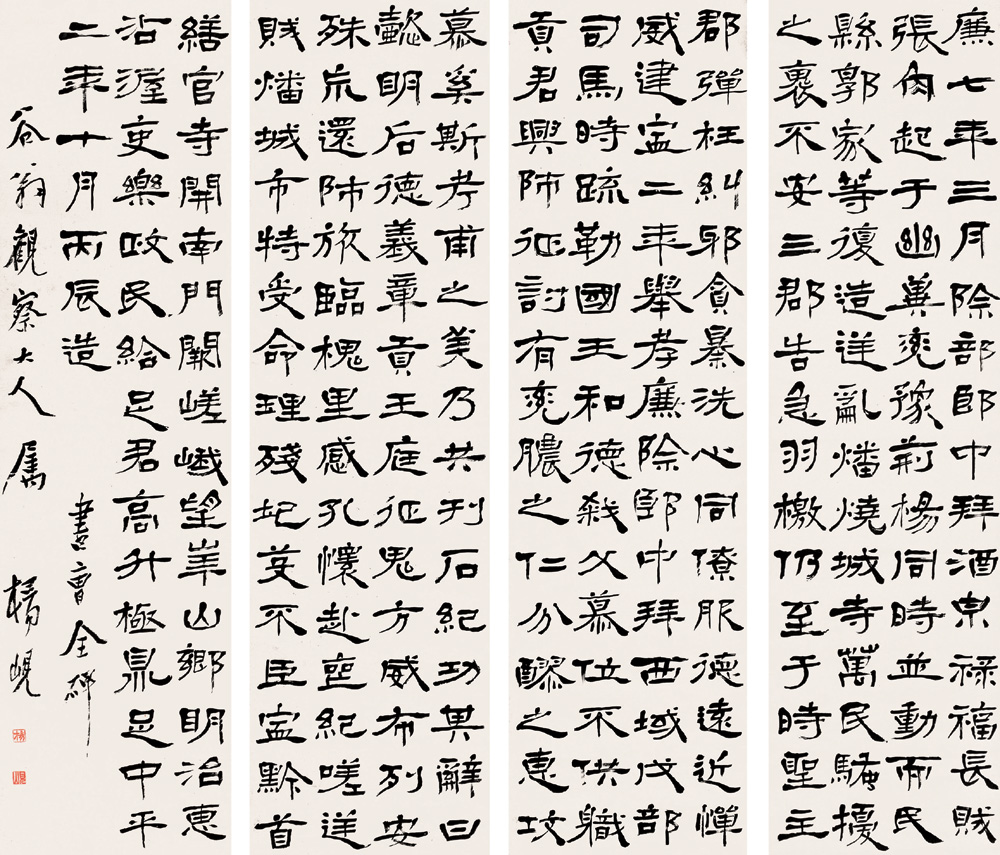 廉七年三月除部郎中拜酒泉祿福長賊
張角起于幽冀兗豫荊楊同時並動而民
縣郭家等復造逆亂燔燒城寺萬民騷擾
之裏不安三郡告急羽檄仍至于時聖主
郡彈枉糾邪貪暴洗心同僚服德遠近憚
威建寧二年舉孝廉除郎中拜西域戊部
司馬時疏勒國王和德弒父篡位不供職
貢君興師征討有兗膿之仁分醪之惠攻
慕奚斯考甫之美乃共刊石紀功其辭曰
懿明后德義章貢王庭征鬼方威布列安
殊荒還師旅臨槐里感孔懷赴喪紀嗟逆
賊燔城市特受命理殘圮芟不臣寧黔首
繕官寺開南門闕嵯峨望華山鄉明治惠
沾渥吏樂政民給足君高升極鼎足中平
二年十月丙辰造
谷翁觀察大人屬
書曹全碑
楊峴